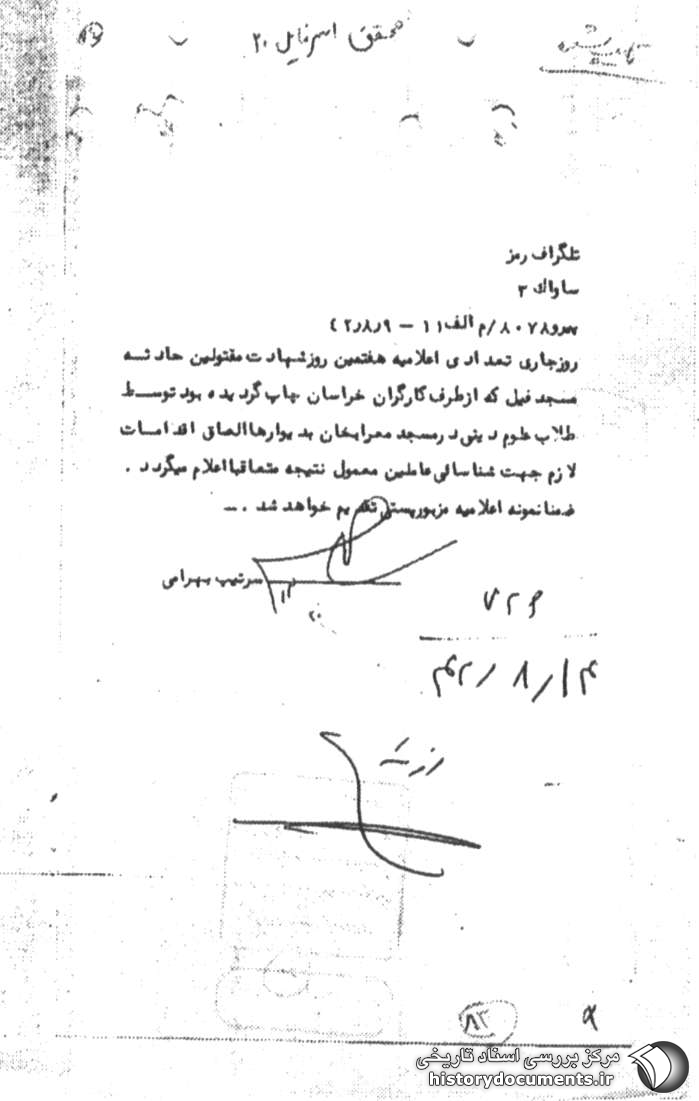 محقق اسرافیل ۲۰
تلگراف رمز
ساواك ۳
پیرو ۸۰۷۸/م الف ۱۱ – ۲/۸/۹)
روزجاری تعدادی اعلامیه هفتمین روزشهادت مقتولین حادثه
مسجد فیل که ازطرف کارگران خراسان چاپ گردیده بود توسط
طلاب علوم دینی درمسجد معرابخان بدیوارها الصاق اقدامات
لازم جهت شناسائی عاملین معمول نتیجه متعاقبا اعلام میگردد .
ضمنا نمونه اعلامیه مزبورپستی تقدیم خواهد شد . ــ
سرتیپ بهرامی
۲۰
۷۲۶
۸۳
مرکز بررسی اسناد تاریخی
historydocuments.ir